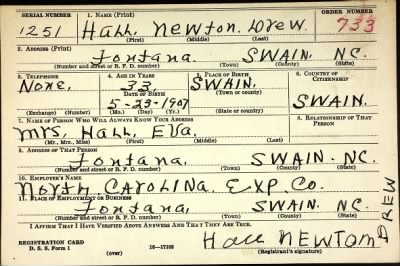 SERIAL NUMBER 1. NAME (Print) ORDER NUMBER
1251 Hall, Newton. Drew. 733
(First) (Middle) (Last)
2. ADDRESS (Print)
Fontana. SWAIN. NC.
(Number and street or R. F. D. number) (Town) (County) (State)
3. TELEPHONE 4. AGE IN YEARS 5. PLACE OF BIRTH 6. COUNTRY OF CITIZENSHIP
None. 33 SWAIN.
DATE OF BIRTH (Town or county)
5-23-1907 SWAIN.
(Exchange) (Number) (Mo.) (Day) (Yr.) (State or country)
7. NAME OF PERSON WHO WILL ALWAYS KNOW YOUR ADDRESS 8. RELATIONSHIP OF THAT PERSON
Mrs. Hall, Eva.
(Mr., Mrs., Miss) (First) (Middle) (Last)
9. ADDRESS OF THAT PERSON
Fontana. SWAIN. NC.
(Number and street or R. F. D. number) (Town) (County) (State)
10. EMPLOYER'S NAME
North CAROLINA. EXP. Co.
11. PLACE OF EMPLOYMENT OR BUSINESS
Fontana. SWAIN. NC.
(Number and street or R. F. D. number) (Town) (County) (State)
I AFFIRM THAT I HAVE VERIFIED ABOVE ANSWERS AND THAT THEY ARE TRUE.
REGISTRATION CARD
D. S. S. Form 1 16-17105 Hall NEWTON DREW
(over) (Registrant's signature)